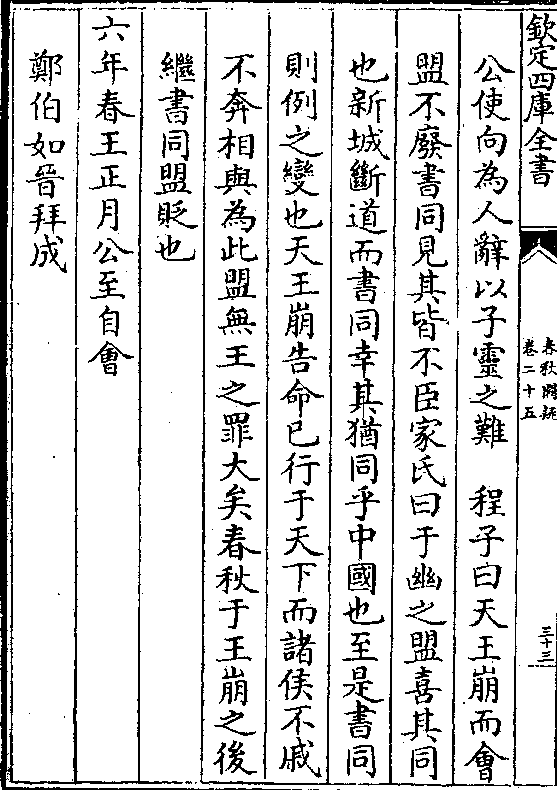 欽定四庫全書
春秋闕疑
卷二十五
三十三
公使向為人辭以子靈之難　程子曰天王崩而會
盟不廢書同見其皆不臣家氏曰于幽之盟喜其同
也新城斷道而書同幸其猶同乎中國也至是書同
則例之變也天王崩告命已行于天下而諸侯不戚
不奔相與為此盟無王之罪大矣春秋于王崩之後
繼書同盟貶也
六年春王正月公至自會
鄭伯如晉拜成